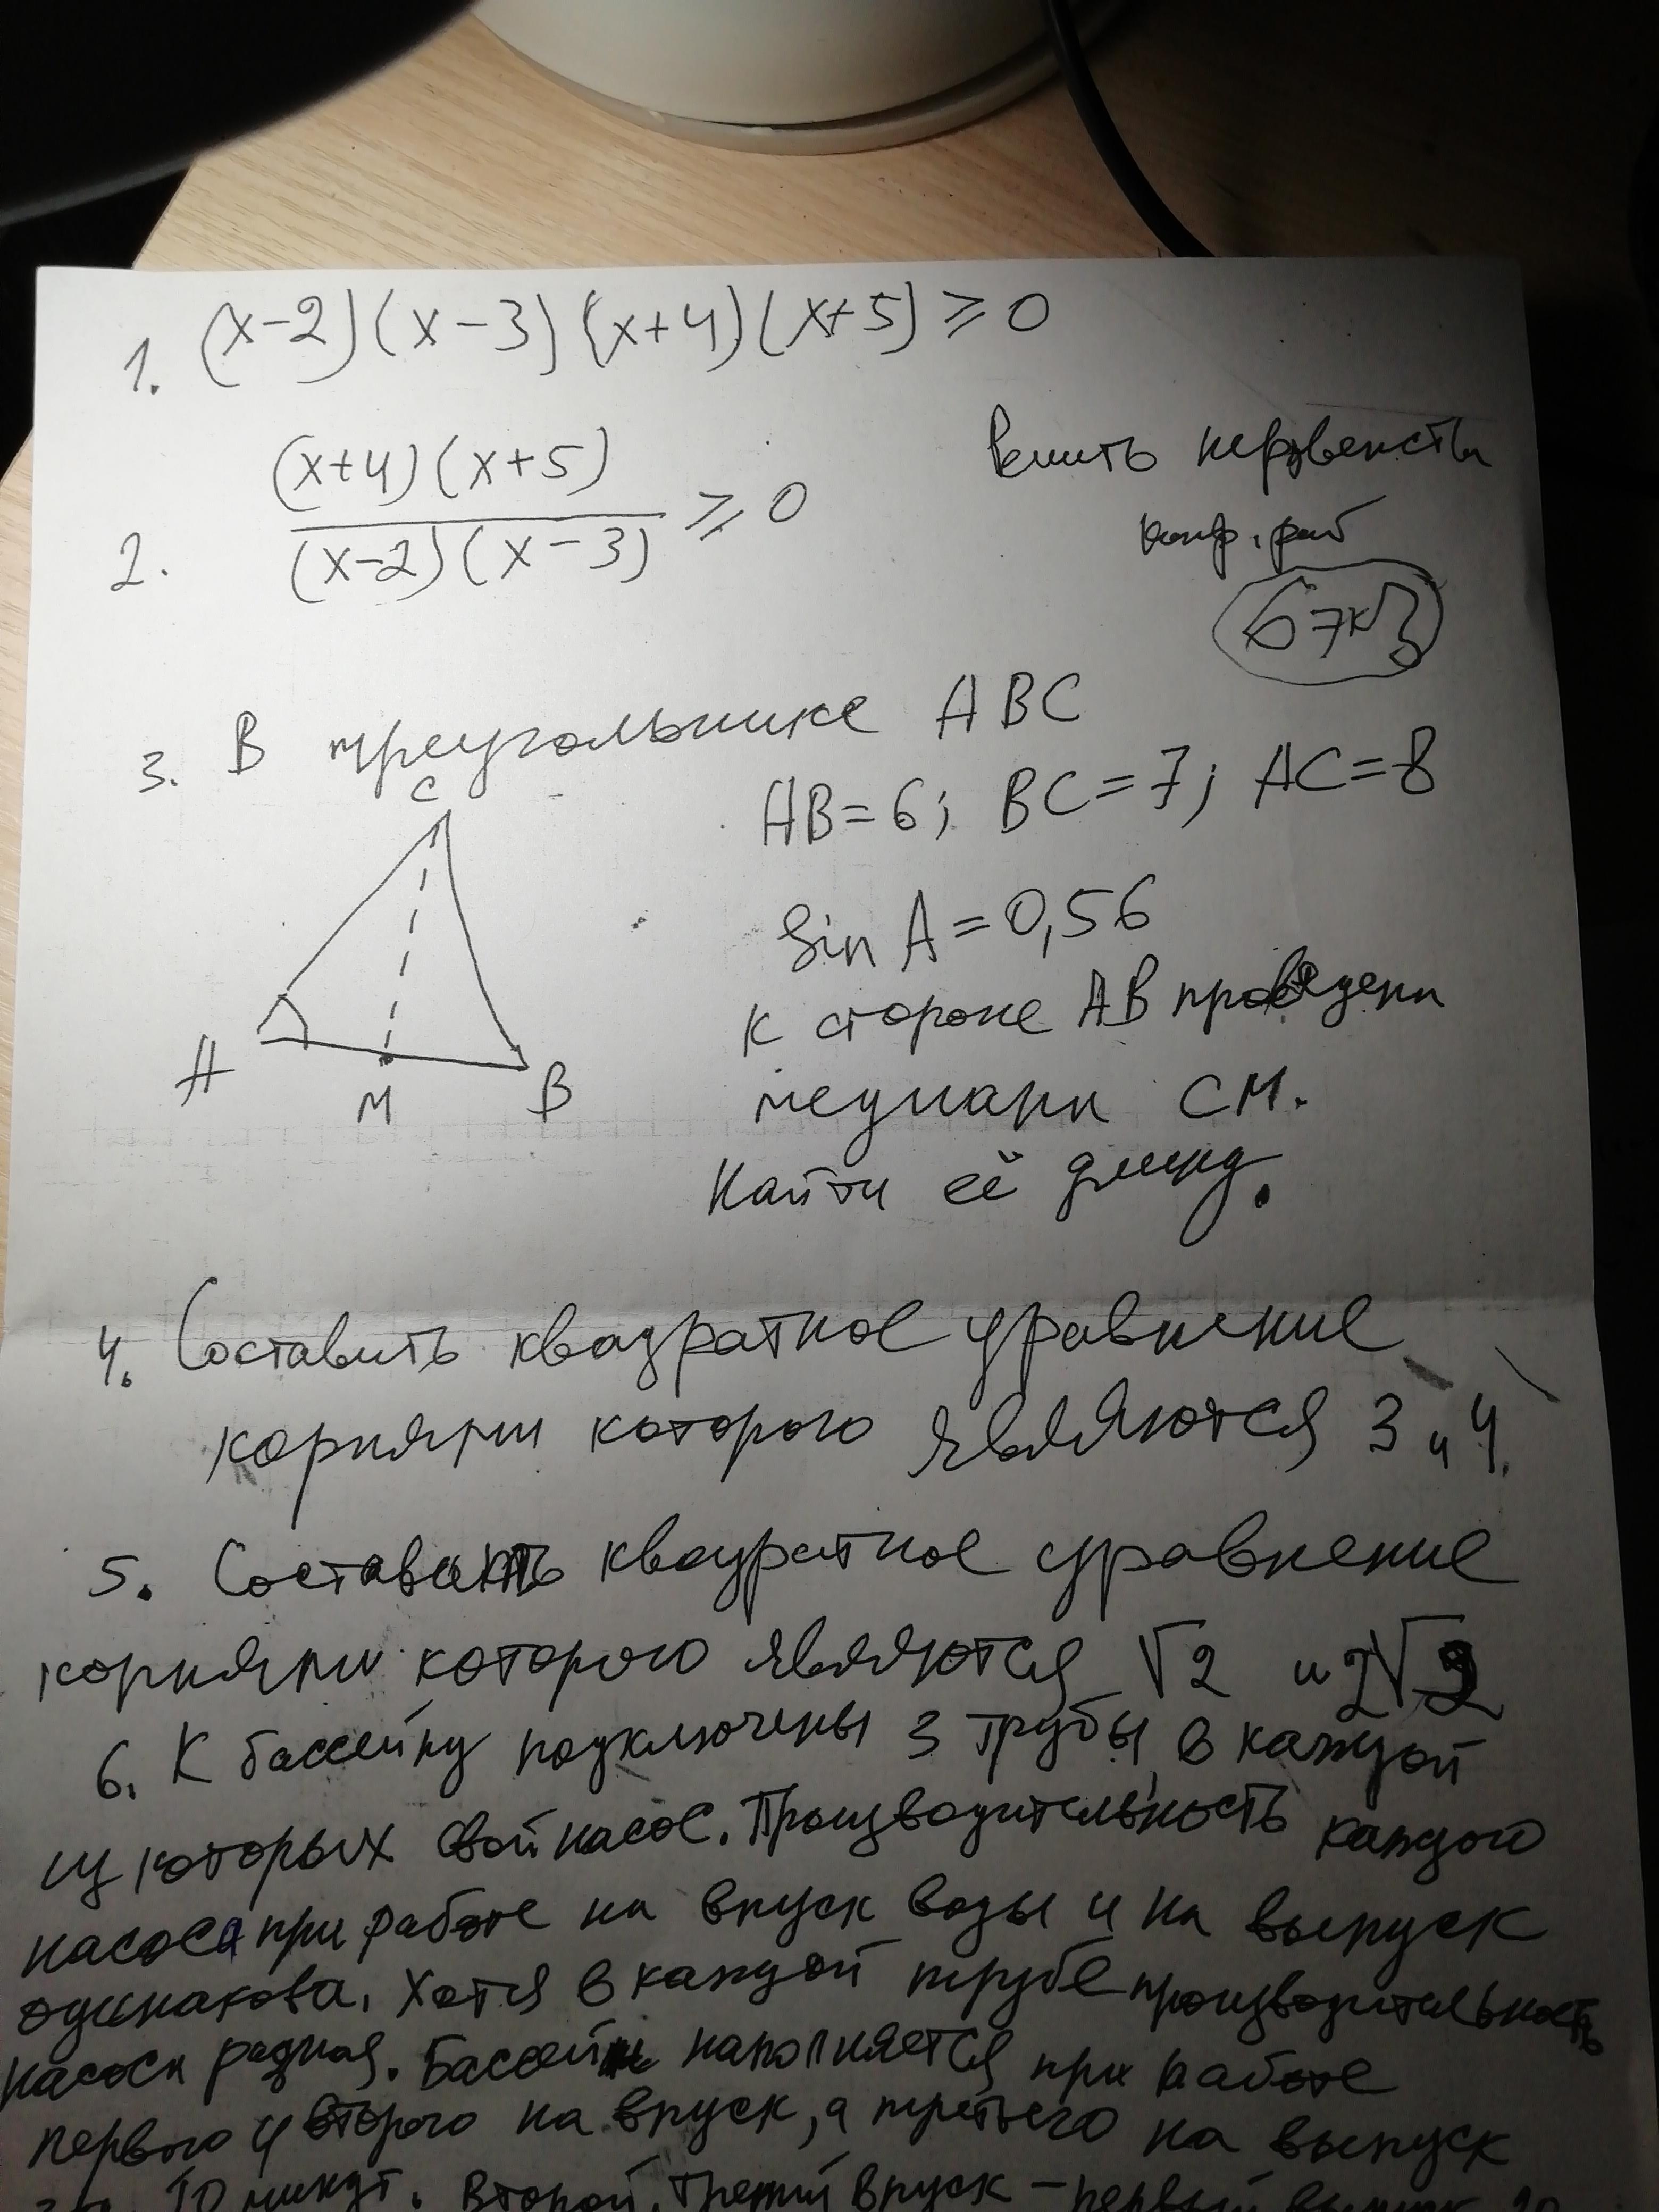 1. (x-2)(x-3)(x+4)(x+5) ≥ 0
неравенства
2. (x+4)(x+5)
(x-2)(x-3) ≥ 0
3. В треугольнике ABC
AB=6; BC=7; AC=8
C
A
M
B
sin A=0,56
к стороне AB проведена
медиана CM.
Найти её длину.
4. Составить квадратное уравнение
корнями которого являются 3 и 4.
5. Составить квадратное уравнение
корнями которого являются √2 и 2√2
6. К бассейну подключены 3 трубы, в каждой
из которых свой насос. Производительность каждого
насоса при работе на впуск воды и на выпуск
одинакова. Хотя в каждой трубе производительность
насоса разная. Бассейн наполняется при работе
первого и второго на впуск, а третьего на выпуск
10 минут. Второй, третий впуск - первый